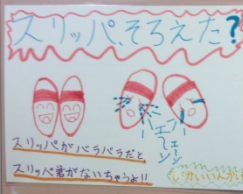 スリッパ、そろえた?
エーン
エーン
スリッパがバラバラだと
スリッパ君がないちゃうよ!!